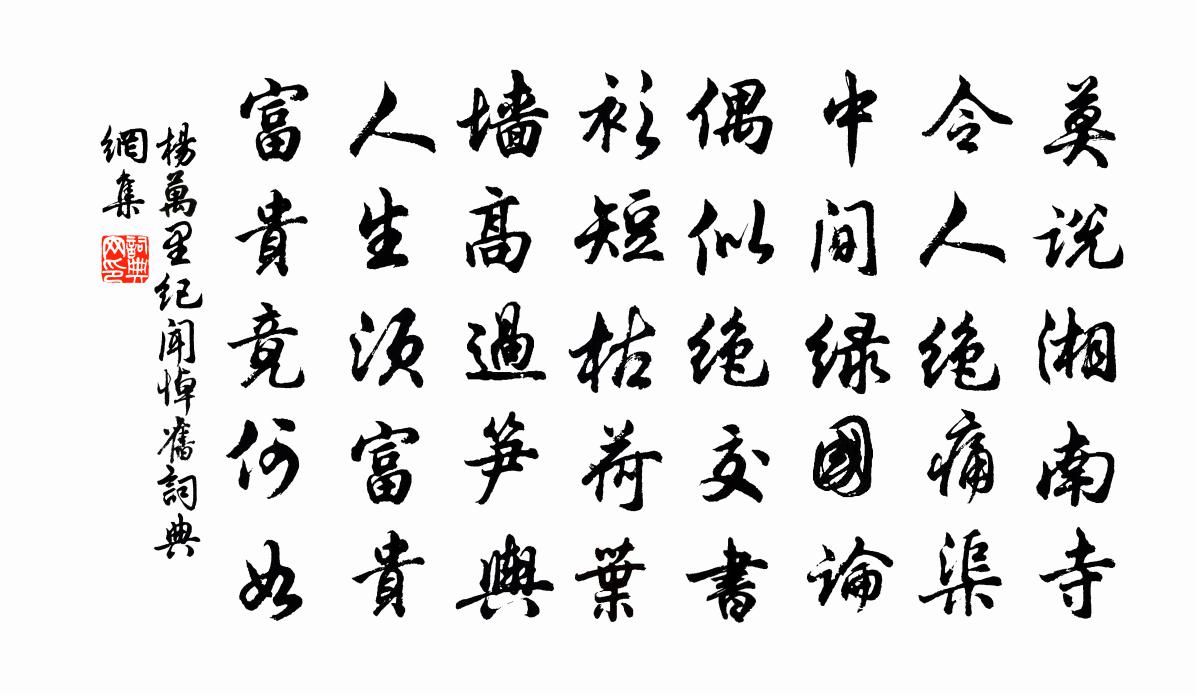 莫说湘南寺
令人绝痛渠
中间缘国论
偶似绝交书
衫短枯荷叶
墙高过笋舆
人生须富贵
富贵竟何如
杨万里纪闻悼旧词典
网集
词典网印